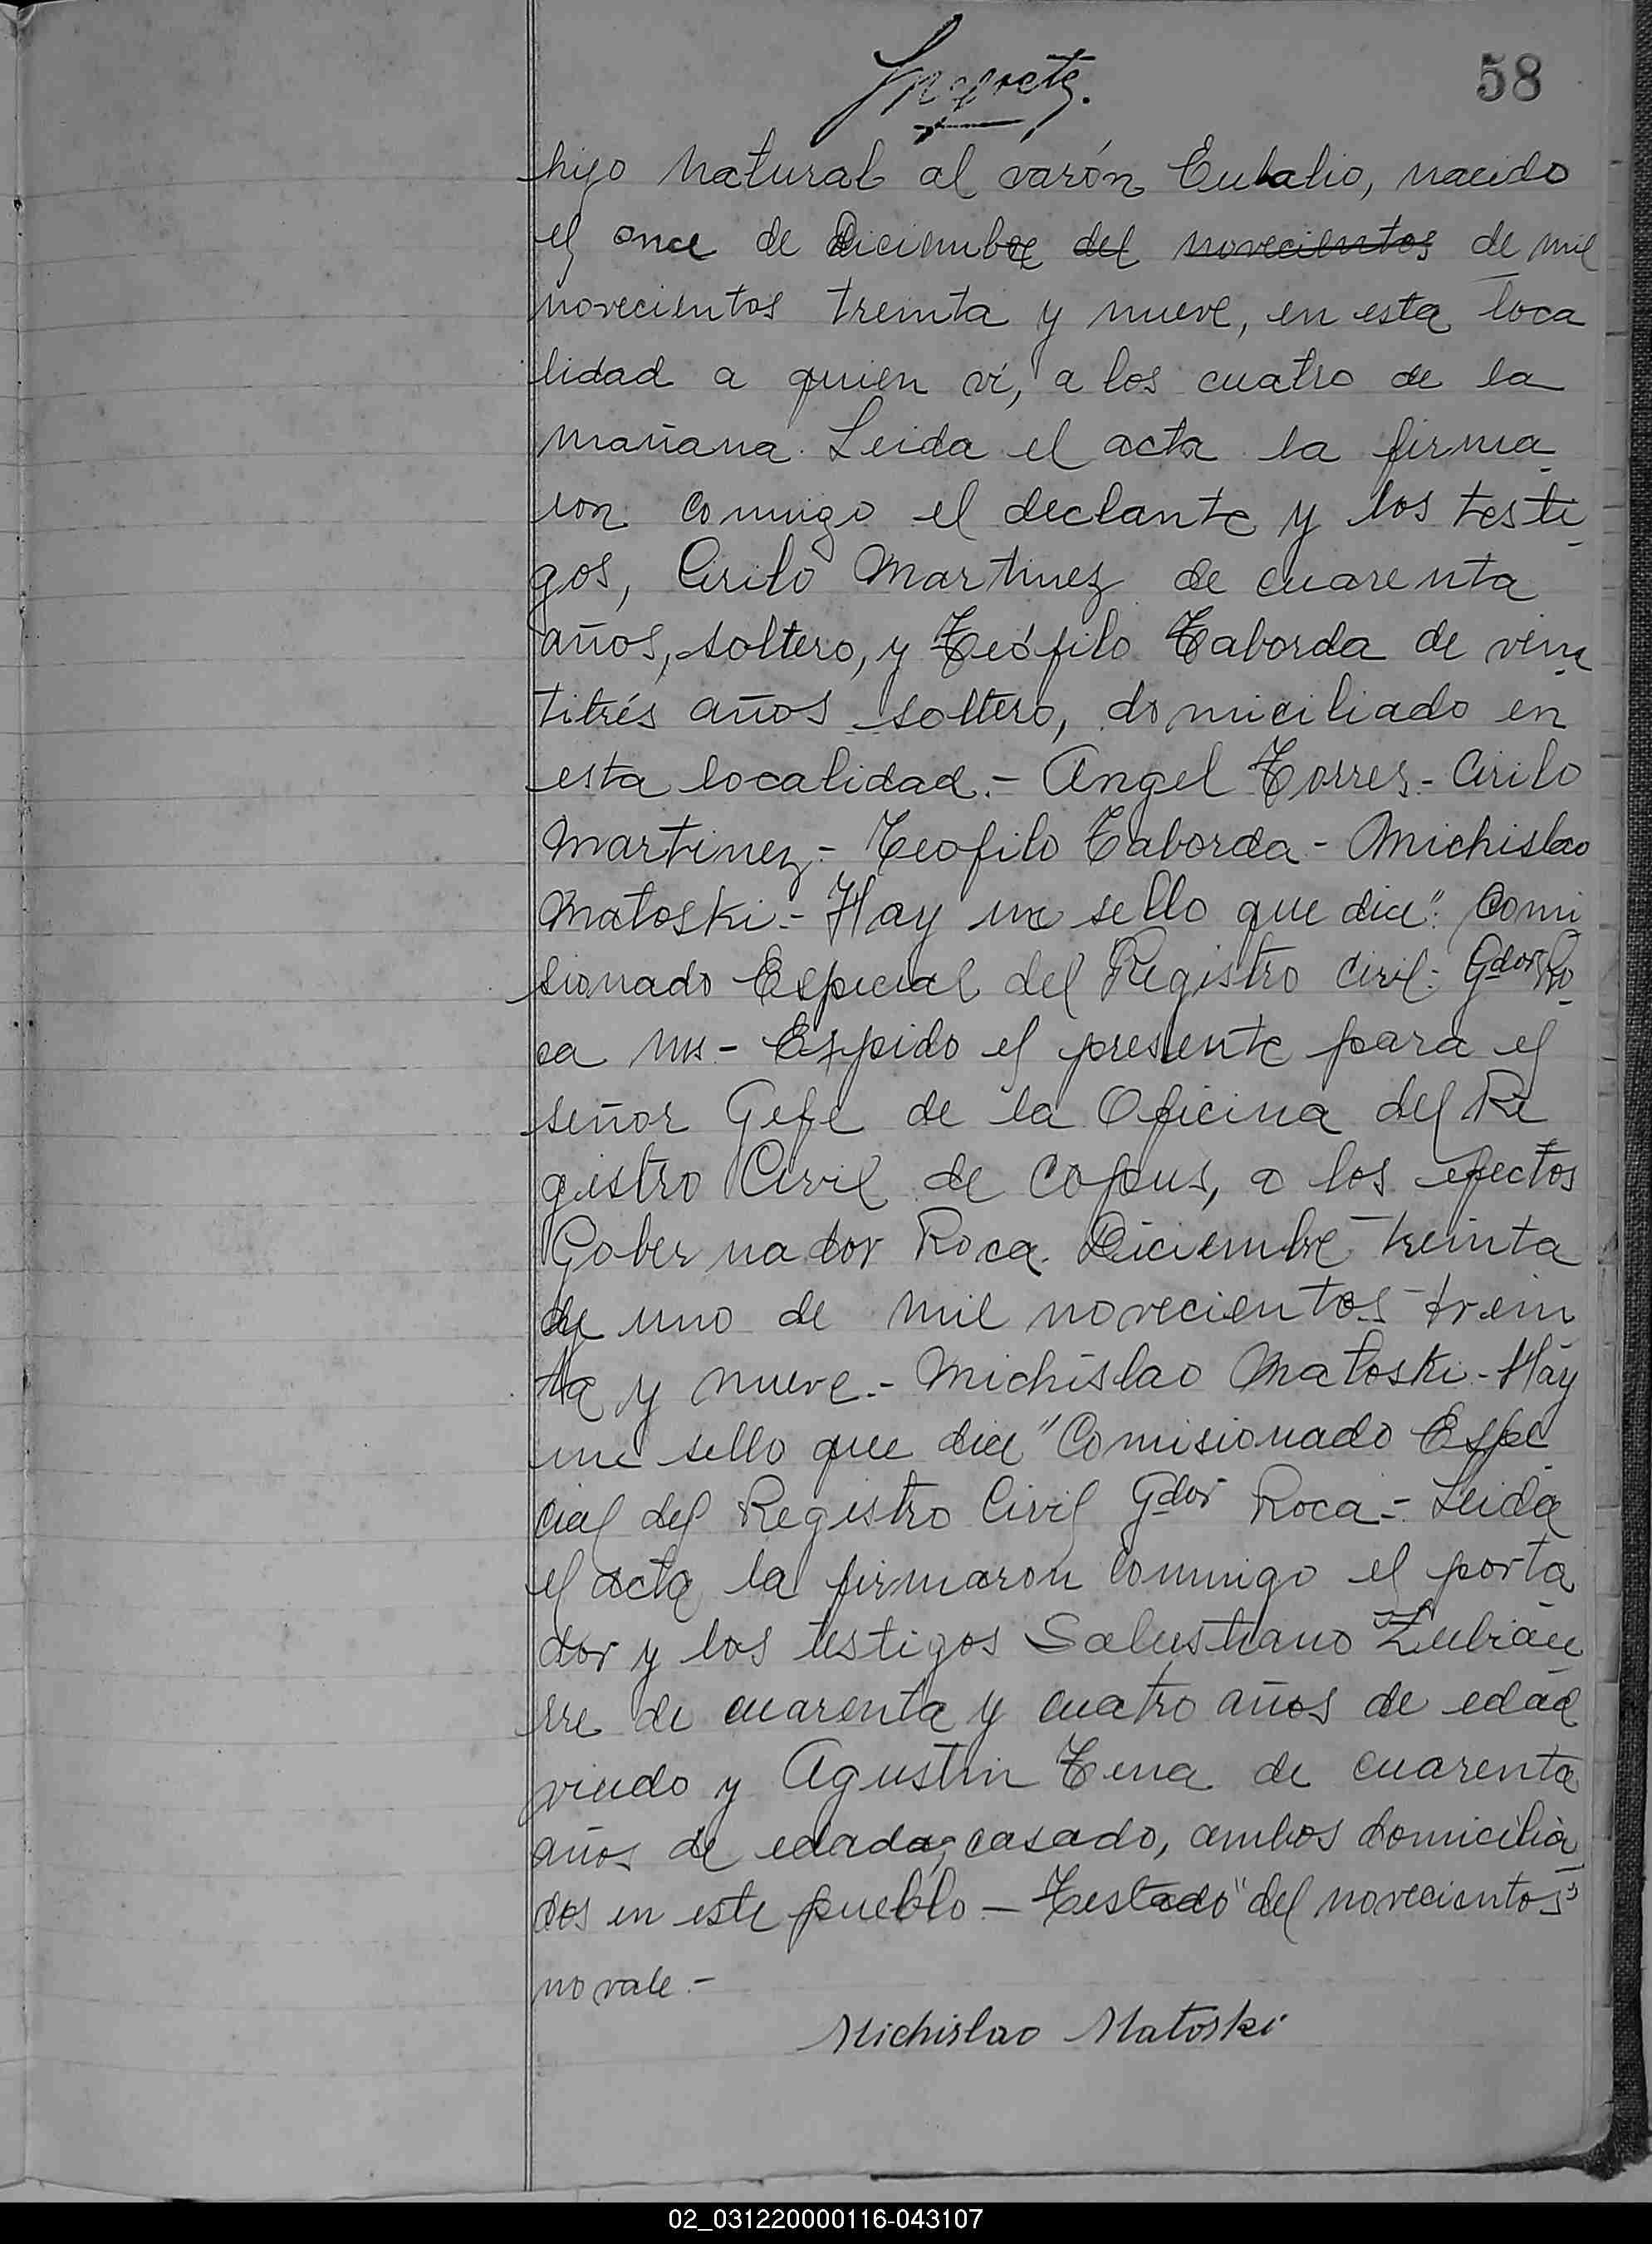 58
hijo natural al varón Eulalio, nacido
el once de Diciembre del novecientos de mil
novecientos treinta y nueve, en esta loca
lidad a quien vi, a los cuatro de la
mañana. Leida el acta la firma
ron conmigo el declante y los testi
gos, Cirilo Martinez de cuarenta
años, soltero, y Teófilo Taborda de vein
titrés años soltero, domiciliado en
esta localidad.- Angel Torres - Cirilo
Martinez - Teofilo Taborda - Michislao
Matoski.- Hay un sello que dice": Comi
sionado Especial del Registro Civil. Gdor Ro
ca - Expido el presente para el
señor Gefe de la Oficina del Re
gistro Civil de Corpus, a los efectos
Gobernador Roca. Diciembre treinta
de uno de mil novecientos trein
ta y nueve.- Michislao Matoski - Hay
un sello que dice "Comisionado Espe
cial del Registro Civil Gdor Roca.- Leida
el acta la firmaron conmigo el porta
dor y los testigos Salustiano Zubiau
rre de cuarenta y cuatro años de edad
viudo y Agustin Tena de cuarenta
años de edada, casado, ambos domicilia
dos en este pueblo - Testado "del novecientos"
no vale.-
Michislao Matoski
02_031220000116-043107